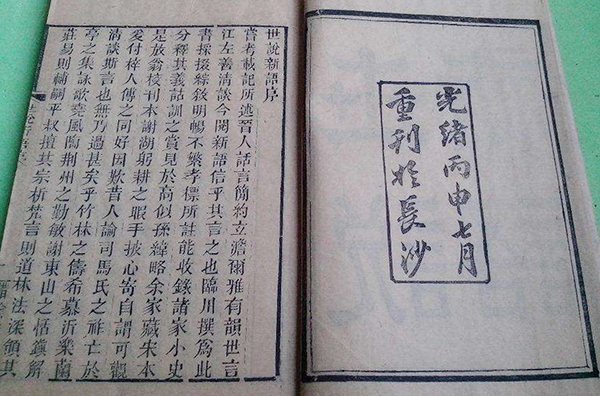 光緒丙申七月
重刊於長沙
世說新語序
嘗考載記所述晉人話言簡約玄澹爾雅有韻世言
江左善清談今閱新語信乎其言之也臨川撰為此
書採掇綜敘明暢不繁孝標所註能收錄諸家小史
分釋其義詁訓之賞見於高似孫緯略余家藏宋本
是放翁校刊本謝湖躬耕之暇手披心寄自謂可觀
爰付梓人傳之同好因歎昔人論司馬氏之祚亡於
清談斯言也無乃過甚矣乎竹林之儔希慕沂樂蘭
亭之集詠歌堯風陶荊州之勤敏謝東山之恬鎮解
莊易則輔嗣平叔擅其宗析梵言則道林法深領其